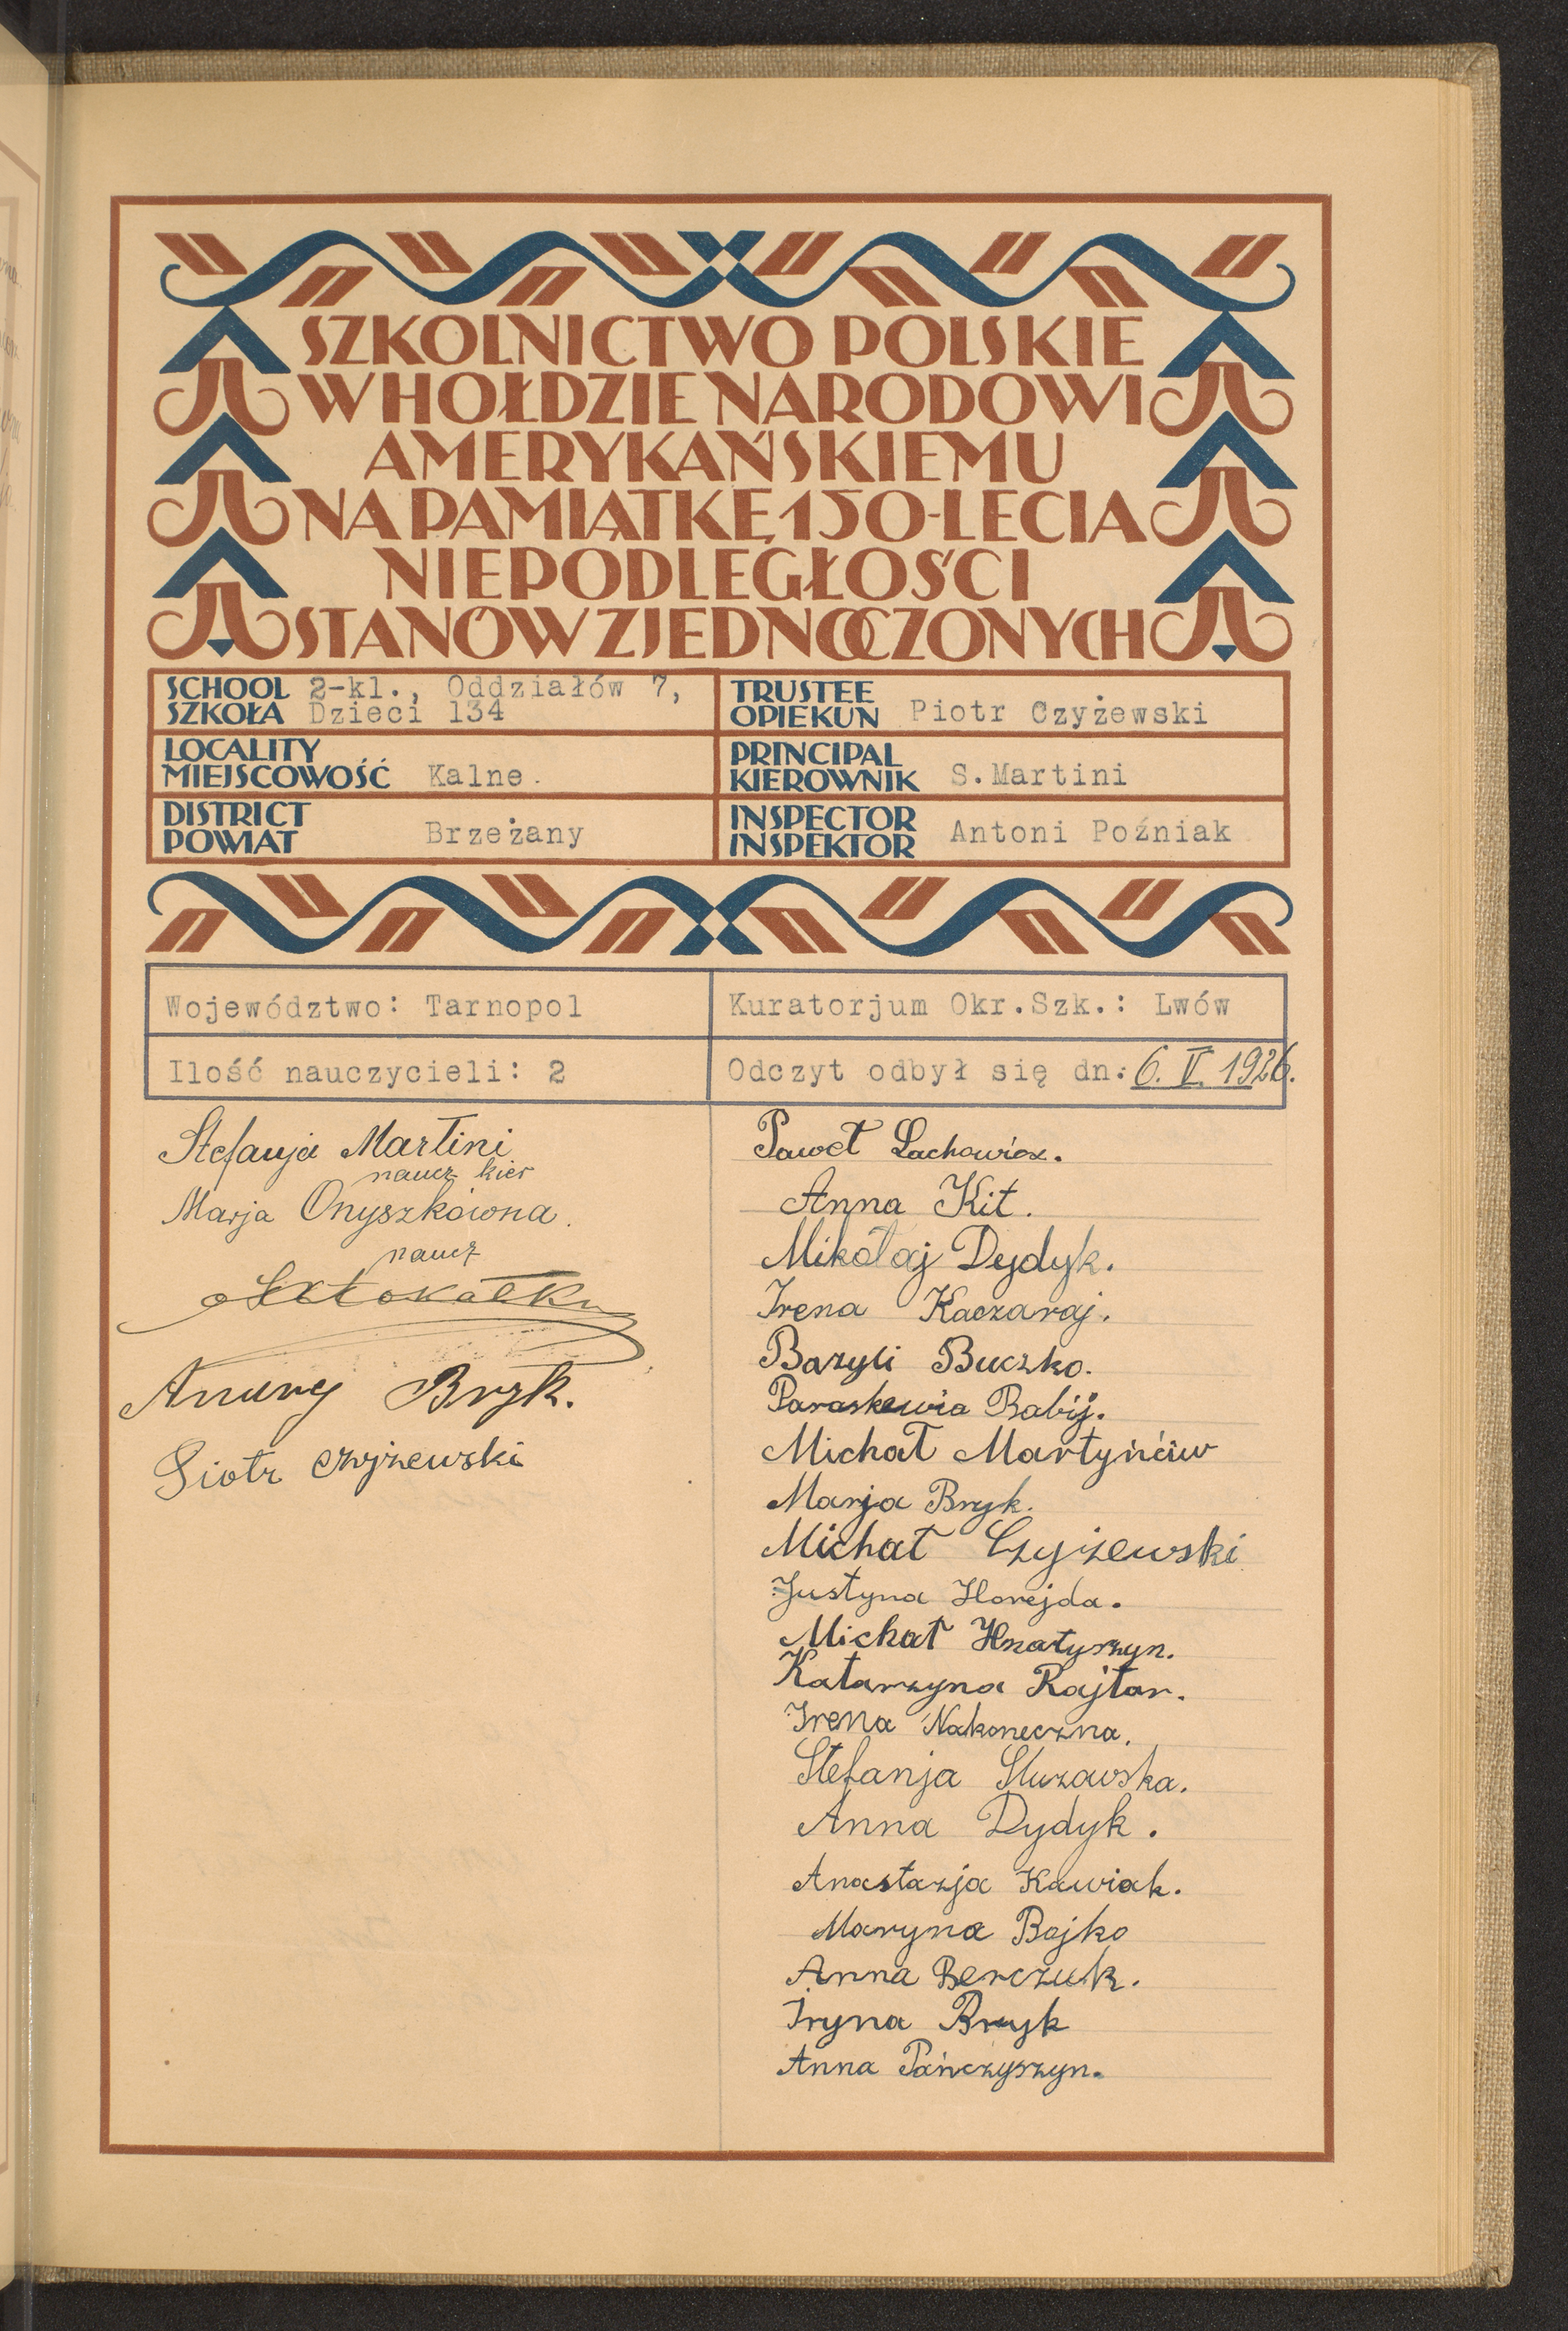 SZKOLNICTWO POLSKIE
W HOŁDZIE NARODOWI
AMERYKAŃSKIEMU
NA PAMIĄTKĘ 150-LECIA
NIEPODLEGŁOŚCI
STANÓW ZJEDNOCZONYCH
SCHOOL
SZKOŁA
2-kl., Oddziałów 7,
Dzieci 134
TRUSTEE
OPIEKUN Piotr Czyżewski
LOCALITY
MIEJSCOWOŚĆ Kalne.
PRINCIPAL
KIEROWNIK S. Martini
DISTRICT
POWIAT Brzeżany
INSPECTOR
INSPEKTOR Antoni Poźniak
Województwo: Tarnopol
Kuratorjum Okr.Szk.: Lwów
Ilość nauczycieli: 2
Odczyt odbył się dn: 6. V. 1926.
Stefanja Martini
naucz kier
Marja Onyszkówna.
naucz
Bryk.
Piotr Czyżewski
Paweł Lachowicz.
Anna Kit.
Mikołaj Dydyk.
Irena Kaczaraj.
Bazyli Buczko.
Paraskewia Babij.
Michał Martyńciw
Marja Bryk.
Michał Czyżewski
Justyna Horejda.
Michał Hnatyszyn.
Katarzyna Rajtar.
Irena Nakoneczna.
Stefanja Sluzawska.
Anna Dydyk.
Anastazja Kawiak.
Maryna Bojko
Anna Berczuk.
Iryna Bryk
Anna Pańczyszyn.